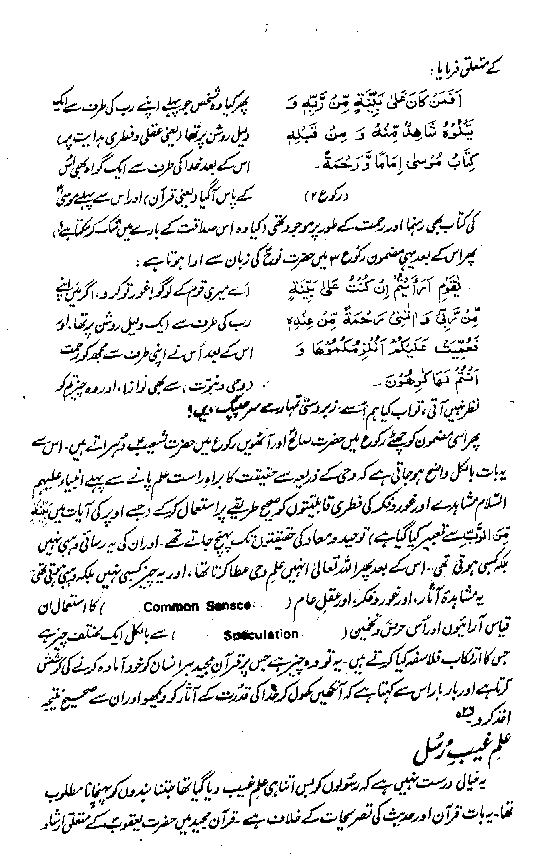 کے متعلق فرمایا:
اَفَمَنْ كَانَ عَلٰى بَيِّنَةٍ مِّنْ رَّبِّهٖ وَ
پھر کیا وہ شخص جو پہلے اپنے رب کی طرف سے ایک
يَتْلُوْهُ شَاهِدٌ مِّنْهُ وَ مِنْ قَبْلِهٖ
دلیل روشن پر تھا (یعنی عقلی و فطری ہدایت پر)
كِتَابُ مُوْسٰى اِمَامًا وَّ رَحْمَةً۔
اس کے بعد خدا کی طرف سے ایک گواہ بھی اس
(رکوع ۲)
کے پاس آگیا (یعنی قرآن) اور اس سے پہلے موسیٰ
کی کتاب بھی رہنما اور رحمت کے طور پر موجود تھی (کیا وہ اس صداقت کے بارے میں شک کر سکتا ہے)
پھر اس کے بعد یہی مضمون رکوع ۳ میں حضرت نوح کی زبان سے ادا ہوتا ہے:
يٰقَوْمِ اَرَاَيْتُمْ اِنْ كُنْتُ عَلٰى بَيِّنَةٍ
اے میری قوم کے لوگو! غور تو کرو، اگر میں اپنے
مِّنْ رَّبِّيْ وَ اٰتٰىنِيْ رَحْمَةً مِّنْ عِنْدِهٖ
رب کی طرف سے ایک دلیل روشن پر تھا، اور
فَعُمِّيَتْ عَلَيْكُمْ اَنُلْزِمُكُمُوْهَا وَ
اس کے بعد اس نے اپنی طرف سے مجھ کو رحمت
اَنْتُمْ لَهَا كٰرِهُوْنَ۔
(وحی و نبوت) سے بھی نوازا، اور وہ چیز تم کو
نظر نہیں آتی، تو اب کیا ہم اسے زبردستی تمہارے سر چپیک دیں؟
پھر اسی مضمون کو چھٹے رکوع میں حضرت صالح اور آٹھویں رکوع میں حضرت شعیب دہراتے ہیں۔ اس سے
یہ بات بالکل واضح ہو جاتی ہے کہ وحی کے ذریعہ سے حقیقت کا براہ راست علم پانے سے پہلے انبیاء علیہم
السلام مشاہدے اور غور و فکر کی فطری قابلیتوں کو صحیح طریقے پر استعمال کر کے (جسے اوپر کی آیات میں بَيِّنَةٍ
مِّنَ الرَّبِّ سے تعبیر کیا گیا ہے) توحید و معاد کی حقیقتوں تک پہنچ جاتے تھے۔ اور ان کی یہ رسائی وہبی نہیں
بلکہ کسبی ہوتی تھی۔ اس کے بعد پھر اللہ تعالیٰ انہیں علم وحی عطا کرتا تھا، اور یہ چیز کسبی نہیں بلکہ وہبی ہوتی تھی
یہ مشاہدہ آثار، اور غور و فکر، اور عقل عام (Common Sensce) کا استعمال ان
قیاس آرائیوں اور اس خرص و تخمین (Speculation) سے بالکل ایک مختلف چیز ہے
جس کا ارتکاب فلاسفہ کیا کرتے ہیں۔ یہ تو وہ چیز ہے جس پر قرآن مجید ہر انسان کو خود آمادہ کرنے کی کوشش
کرتا ہے اور بار بار اس سے کہتا ہے کہ آنکھیں کھول کر خدا کی قدرت کے آثار کو دیکھو اور ان سے صحیح نتیجہ
اخذ کرو۔
علم غیب رُسل
یہ خیال درست نہیں ہے کہ رسولوں کو بس اتنا ہی علم غیب دیا گیا تھا جتنا بندوں کو پہنچانا مطلوب
تھا۔ یہ بات قرآن اور حدیث کی تصریحات کے خلاف ہے۔ قرآن مجید میں حضرت یعقوب کے متعلق ارشاد